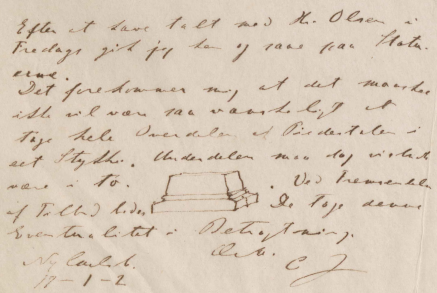 Efter at have talt med Hr. Olsen i
Fredags gik jeg hen og saae paa Statu-
erne.
Det forekommer mig at det maaske
ikke vil være saa vanskeligt at
tage hele Overdelen af Piedestalen i
eet Stykke. Underdelen maa dog
være i to. . Ved Fremsendelse
af Tilbud bedes De tage denne
Eventualitet i Betragtning.
C J
Ny Carlsb.
17-1-2